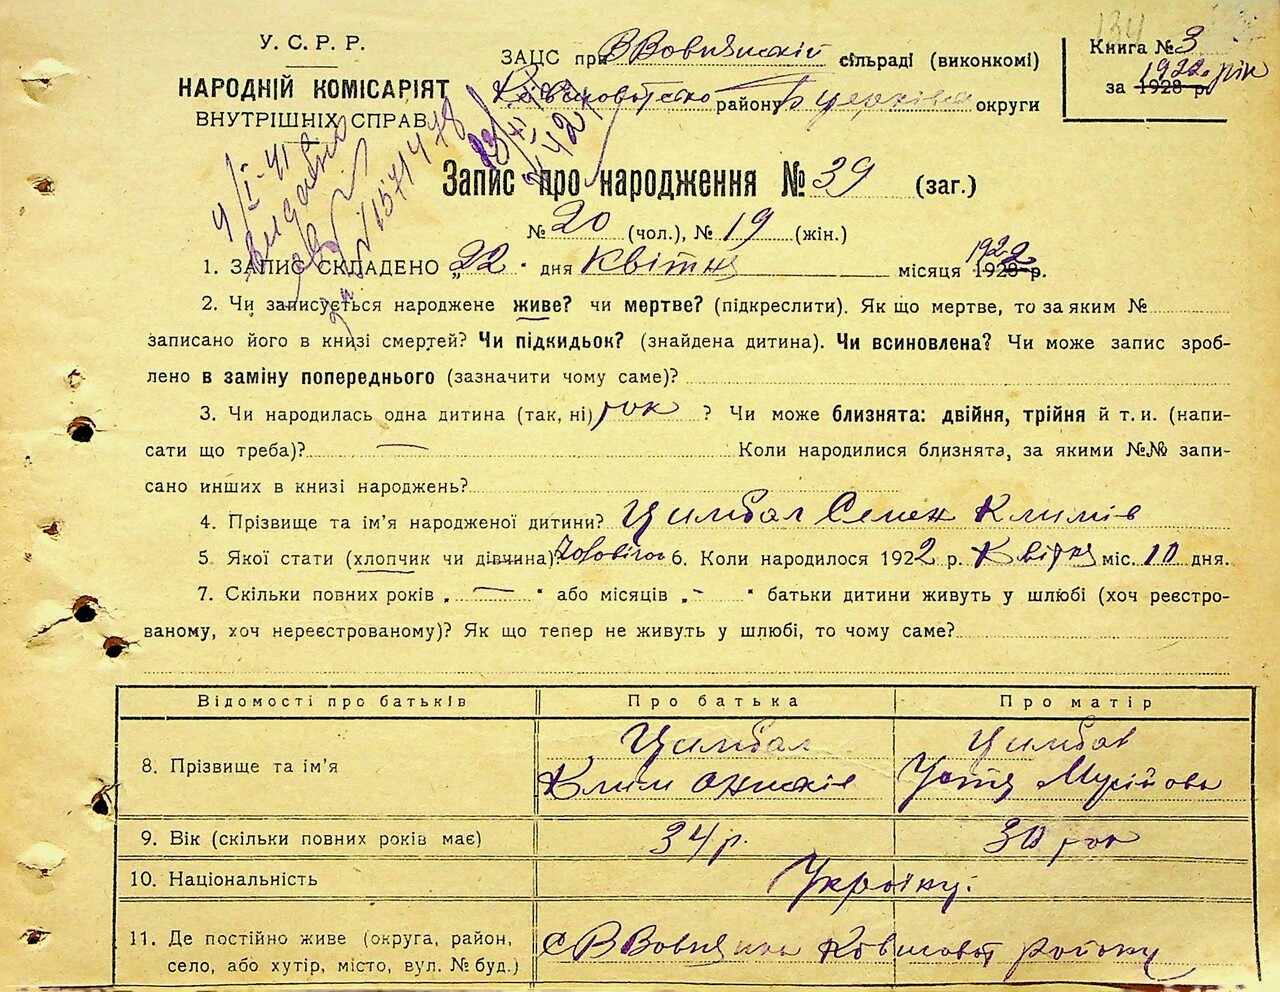 У. С. Р. Р.
НАРОДНІЙ КОМІСАРІЯТ
ВНУТРІШНІХ СПРАВ
ЗАЦС при ВВовнянскій сільраді (виконкомі)
району Б Церківа округи
Книга № 3
1922 рік
за 1928 р.
4/I-41
видавно
13/XI
Запис про народження № 39 (заг.)
№ 20 (чол.), № 19 (жін.)
1. ЗАПИС СКЛАДЕНО „22" дня Квітня місяця 1922 1928 р.
2. Чи записується народжене живе? чи мертве? (підкреслити). Як що мертве, то за яким №
записано його в книзі смертей? Чи підкидьок? (знайдена дитина). Чи всиновлена? Чи може запис зроб-
лено в заміну попереднього (зазначити чому саме)?
3. Чи народилась одна дитина (так, ні) так ? Чи може близнята: двійня, трійня й т. и. (напи-
сати що треба)? — Коли народилися близнята, за якими №№ запи-
сано инших в книзі народжень?
4. Прізвище та ім'я народженої дитини? Цимбал Семен Климів
5. Якої стати (хлопчик чи дівчина)? Чоловічої 6. Коли народилося 1922 р. Квітня міс. 10 дня.
7. Скільки повних років „ — " або місяців „ - " батьки дитини живуть у шлюбі (хоч реєстро-
ваному, хоч нереєстрованому)? Як що тепер не живуть у шлюбі, то чому саме?
Відомості про батьків Про батька Про матір
8. Прізвище та ім'я Цимбал Клим Цимбал Устя Мусійова
9. Вік (скільки повних років має) 34 р. 30 рок
10. Національність Україну.
11. Де постійно живе (округа, район,
село, або хутір, місто, вул. № буд.) с ВВовняна Ковшоват району